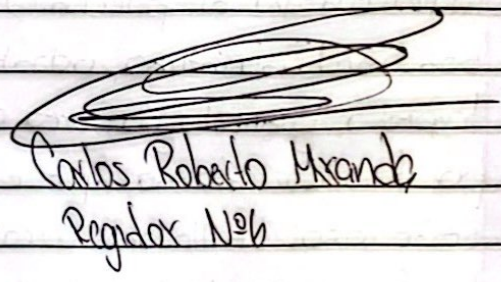 Carlos Roberto Miranda
Regidor Nº6